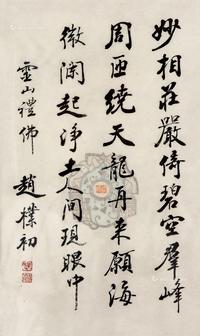 妙相莊嚴倚碧空羣峰
周匝繞天龍再來願海
微瀾起淨土人間現眼中
靈山禮佛
趙樸初